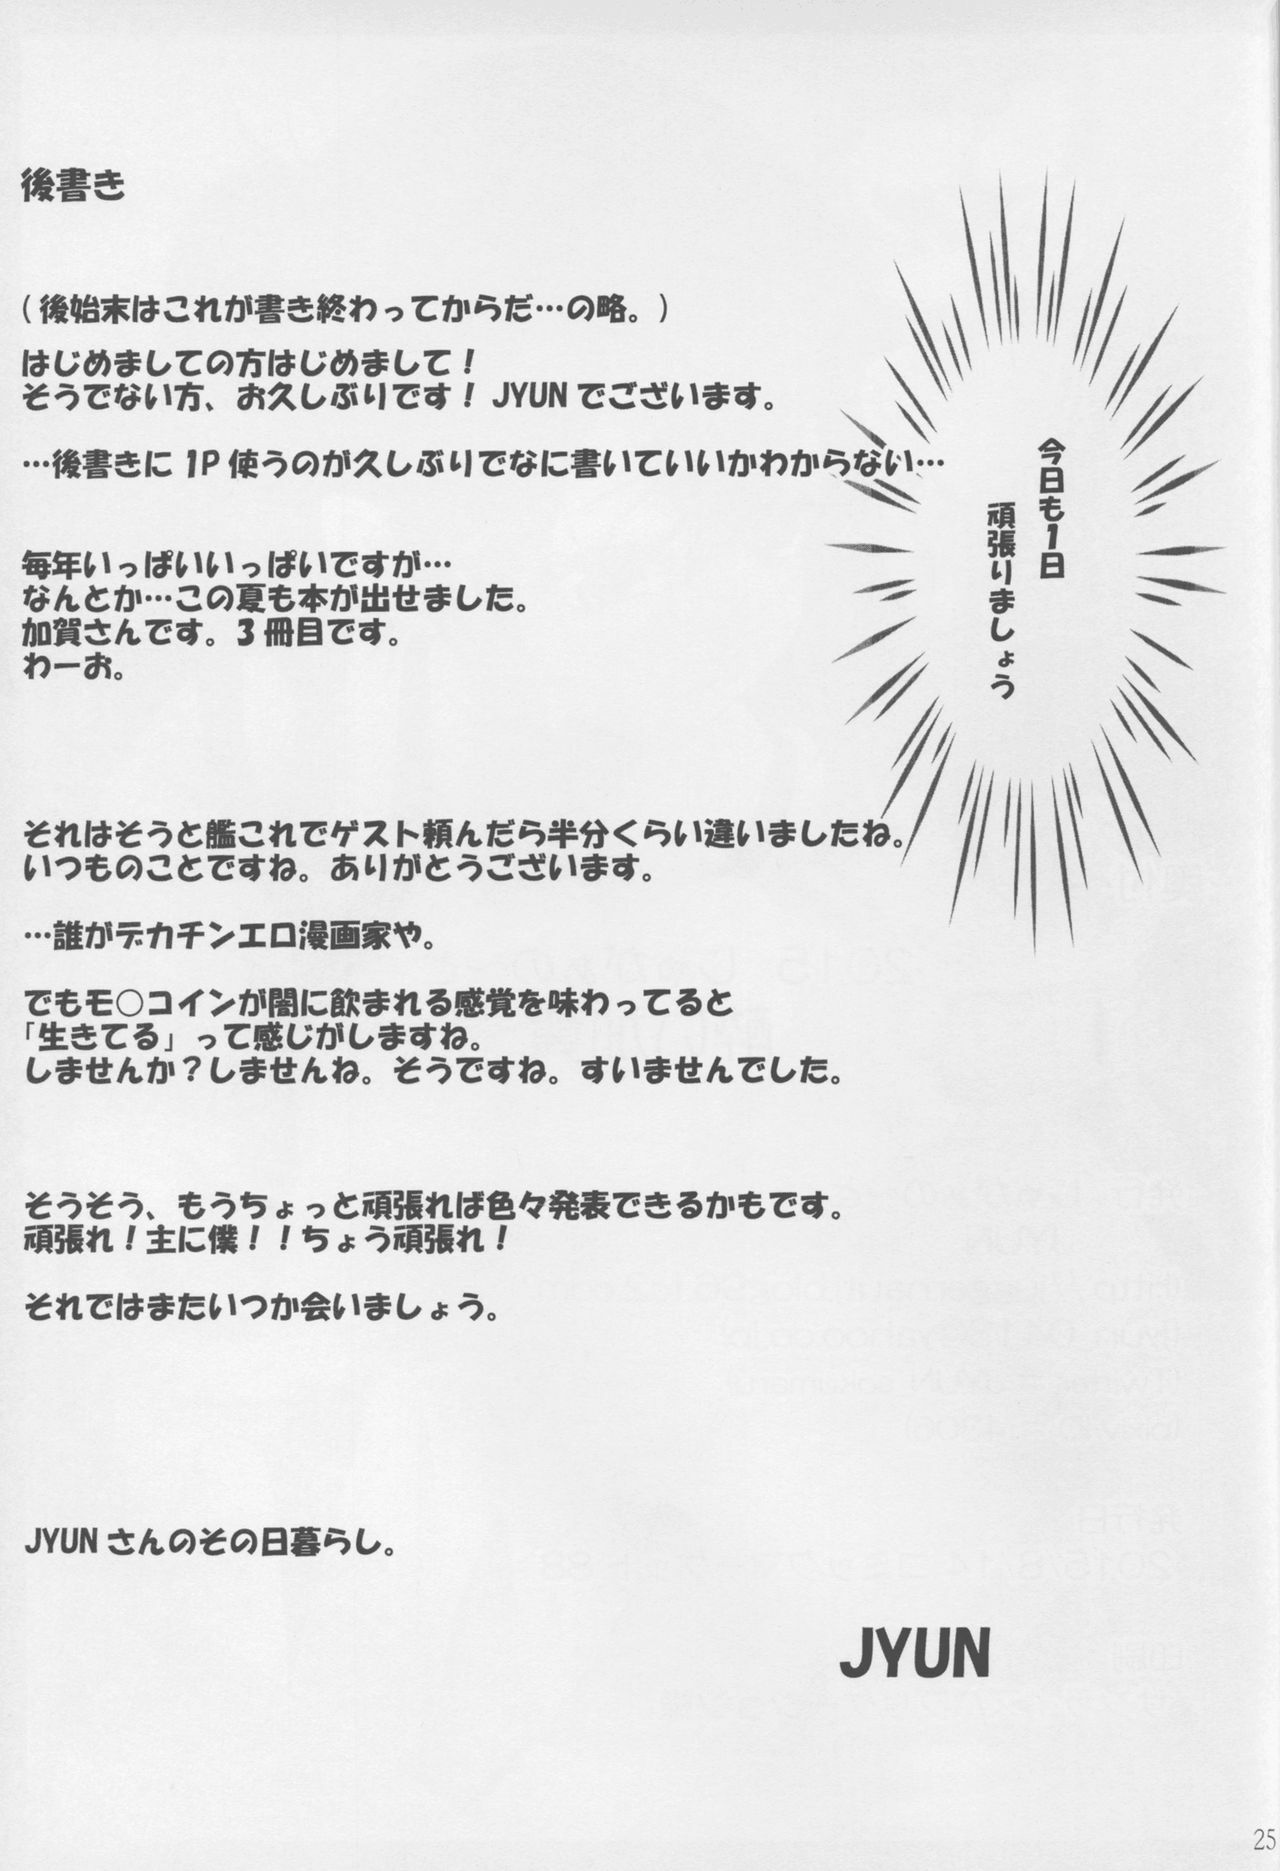 後書き
(後始末はこれが書き終わってからだ…の略。)
はじめましての方はじめまして!
そうでない方、お久しぶりです! JYUNでございます。
…後書きに1P使うのが久しぶりでなに書いていいかわからない…
毎年いっぱいいっぱいですが…
なんとか…この夏も本が出せました。
加賀さんです。3冊目です。
わーお。
今日も1日
頑張りましょう
それはそうと艦これでゲスト頼んだら半分くらい違いましたね。
いつものことですね。ありがとうございます。
…誰がデカチンエロ漫画家や。
でもモ○コインが闇に飲まれる感覚を味わってると
「生きてる」って感じがしますね。
しませんか?しませんね。そうですね。すいませんでした。
そうそう、もうちょっと頑張れば色々発表できるかもです。
頑張れ!主に僕!!ちょう頑張れ!
それではまたいつか会いましょう。
JYUNさんのその日暮らし。
JYUN
25